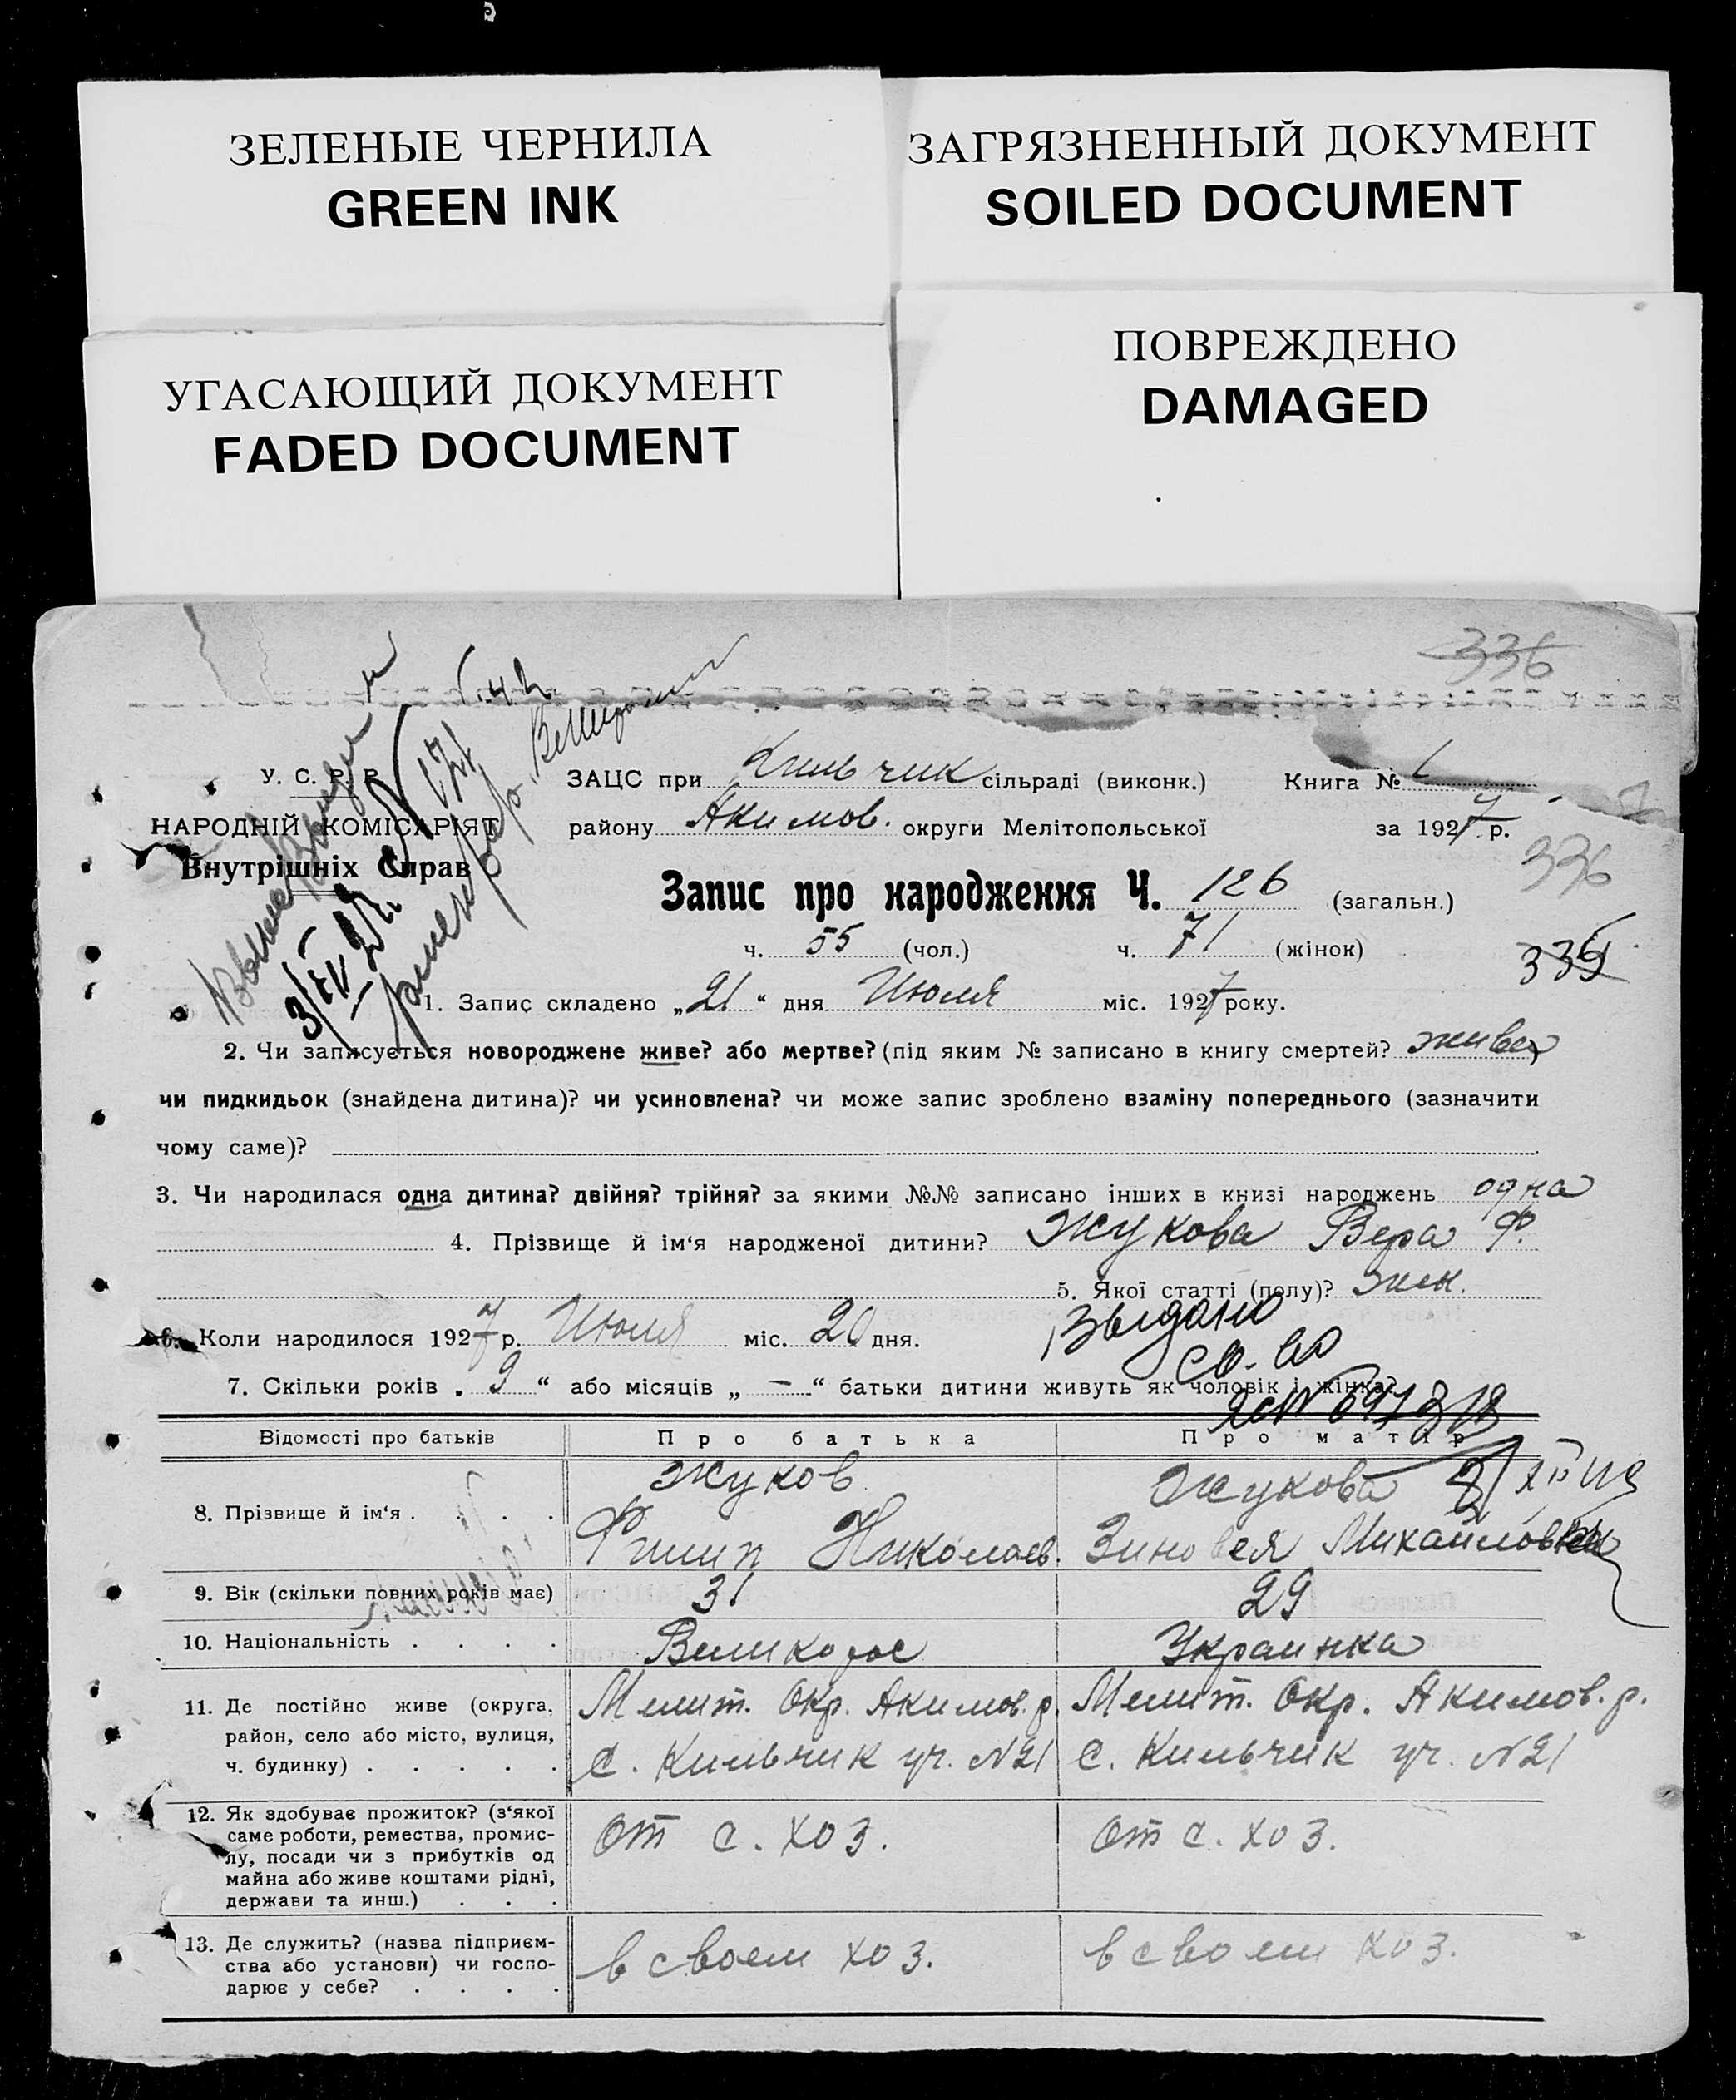 ЗЕЛЕНЫЕ ЧЕРНИЛА
GREEN INK
ЗАГРЯЗНЕННЫЙ ДОКУМЕНТ
SOILED DOCUMENT
УГАСАЮЩИЙ ДОКУМЕНТ
FADED DOCUMENT
ПОВРЕЖДЕНО
DAMAGED
336
У. С. Р. Р.
НАРОДНІЙ КОМІСАРІЯТ
Внутрішніх Справ
ЗАЦС при Кильчик сільраді (виконк.) Книга № 1
району Акимов. округи Мелітопольської за 1927 р.
336
Запис про народження Ч. 126 (загальн.)
ч. 55 (чол.) ч. 71 (жінок)
1. Запис складено „21“ дня Июля міс. 1927 року.
2. Чи записується новороджене живе? або мертве? (під яким № записано в книгу смертей? живая
чи пидкидьок (знайдена дитина)? чи усиновлена? чи може запис зроблено взаміну попереднього (зазначити
чому саме)?
3. Чи народилася одна дитина? двійня? трійня? за якими №№ записано інших в книзі народжень одна
4. Прізвище й ім‘я народженої дитини? Жукова Вера Ф.
5. Якої статті (полу)? жен.
6. Коли народилося 1927 р. Июля міс. 20 дня.
Выдано
св-во
7. Скільки років „9“ або місяців „—“ батьки дитини живуть як чоловік і жінка?
Відомості про батьків Про батька Про матір
8. Прізвище й ім‘я . . . .
Жуков
Филип Николаев.
Жукова
Зиновея Михайловна
9. Вік (скільки повних років має) 31 29
10. Національність . . . . Великорос Украинка
11. Де постійно живе (округа,
район, село або місто, вулиця,
ч. будинку) . . . . .
Мелит. Окр. Акимов. р.
с. Кильчик уч. №21
Мелит. Окр. Акимов. р.
с. Кильчик уч. №21
12. Як здобуває прожиток? (з‘якої
саме роботи, ремества, промис-
лу, посади чи з прибутків од
майна або живе коштами рідні,
держави та инш.) . . .
от с. хоз.
от с. хоз.
13. Де служить? (назва підприєм-
ства або установи) чи госпо-
дарює у себе? . . . .
в своем хоз.
в своем хоз.